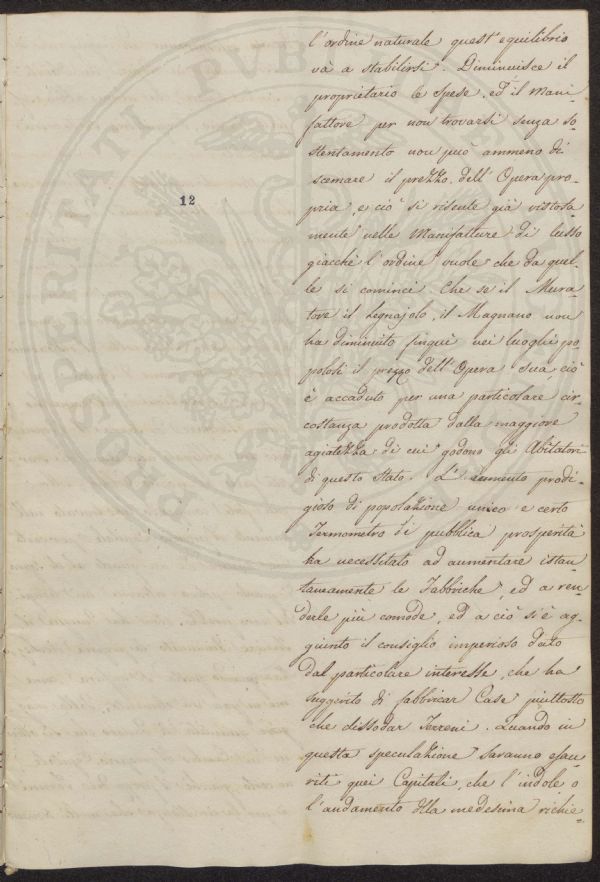 PROSPERITATI PUB
12
l'ordine naturale quest'equilibrio
và a stabilirsi. Diminuisce il
proprietario le spese, ed il Mani-
fattore per non trovarsi senza so-
stentamento non può ammeno di
scemare il prezzo dell'Opera pro-
pria, e ciò si risente già vistosa-
mente nelle Manifatture di lusso
giacchè l'ordine vuole che da quel-
le si cominci. Che se il Mura-
tore il Legnajolo, il Magnano non
ha diminuito finquì nei luoghi po-
polati il prezzo dell'Opera sua, ciò
è accaduto per una particolare cir-
costanza prodotta dalla maggiore
agiatezza di cui godono gli Abitatori
di questo Stato. L'aumento prodi-
gioso di popolazione unico e certo
Termometro di pubblica prosperità
ha necessitato ad aumentare istan-
taneamente le Fabbriche, ed a ren-
derle più comode, ed a ciò si è ag-
giunto il consiglio imperioso dato
dal particolare interesse, che ha
suggerito di fabbricar Case piuttosto
che dissodar Terreni. Quando in
questa speculazione saranno esau-
riti quei Capitali, che l'indole, o
l'andamento della medesima richie-